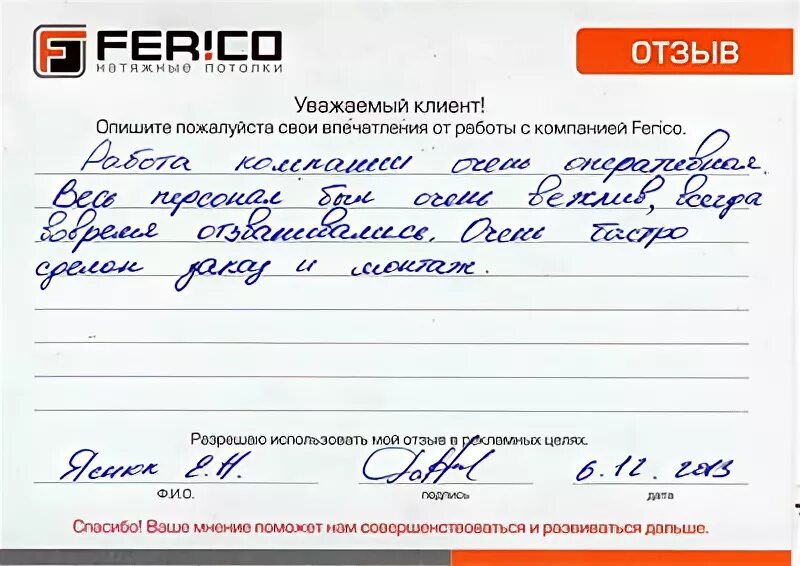 FER!CO
натяжные потолки
ОТЗЫВ
Уважаемый клиент!
Опишите пожалуйста свои впечатления от работы с компанией Ferico.
Работа компании очень оперативная.
Весь персонал был очень вежлив, всегда
вовремя отзванивались. Очень быстро
сделан заказ и монтаж.
Разрешаю использовать мой отзыв в рекламных целях.
Яснюк Е.Н. 6.12.2013
Ф.И.О. подпись дата
Спасибо! Ваше мнение поможет нам совершенствоваться и развиваться дальше.